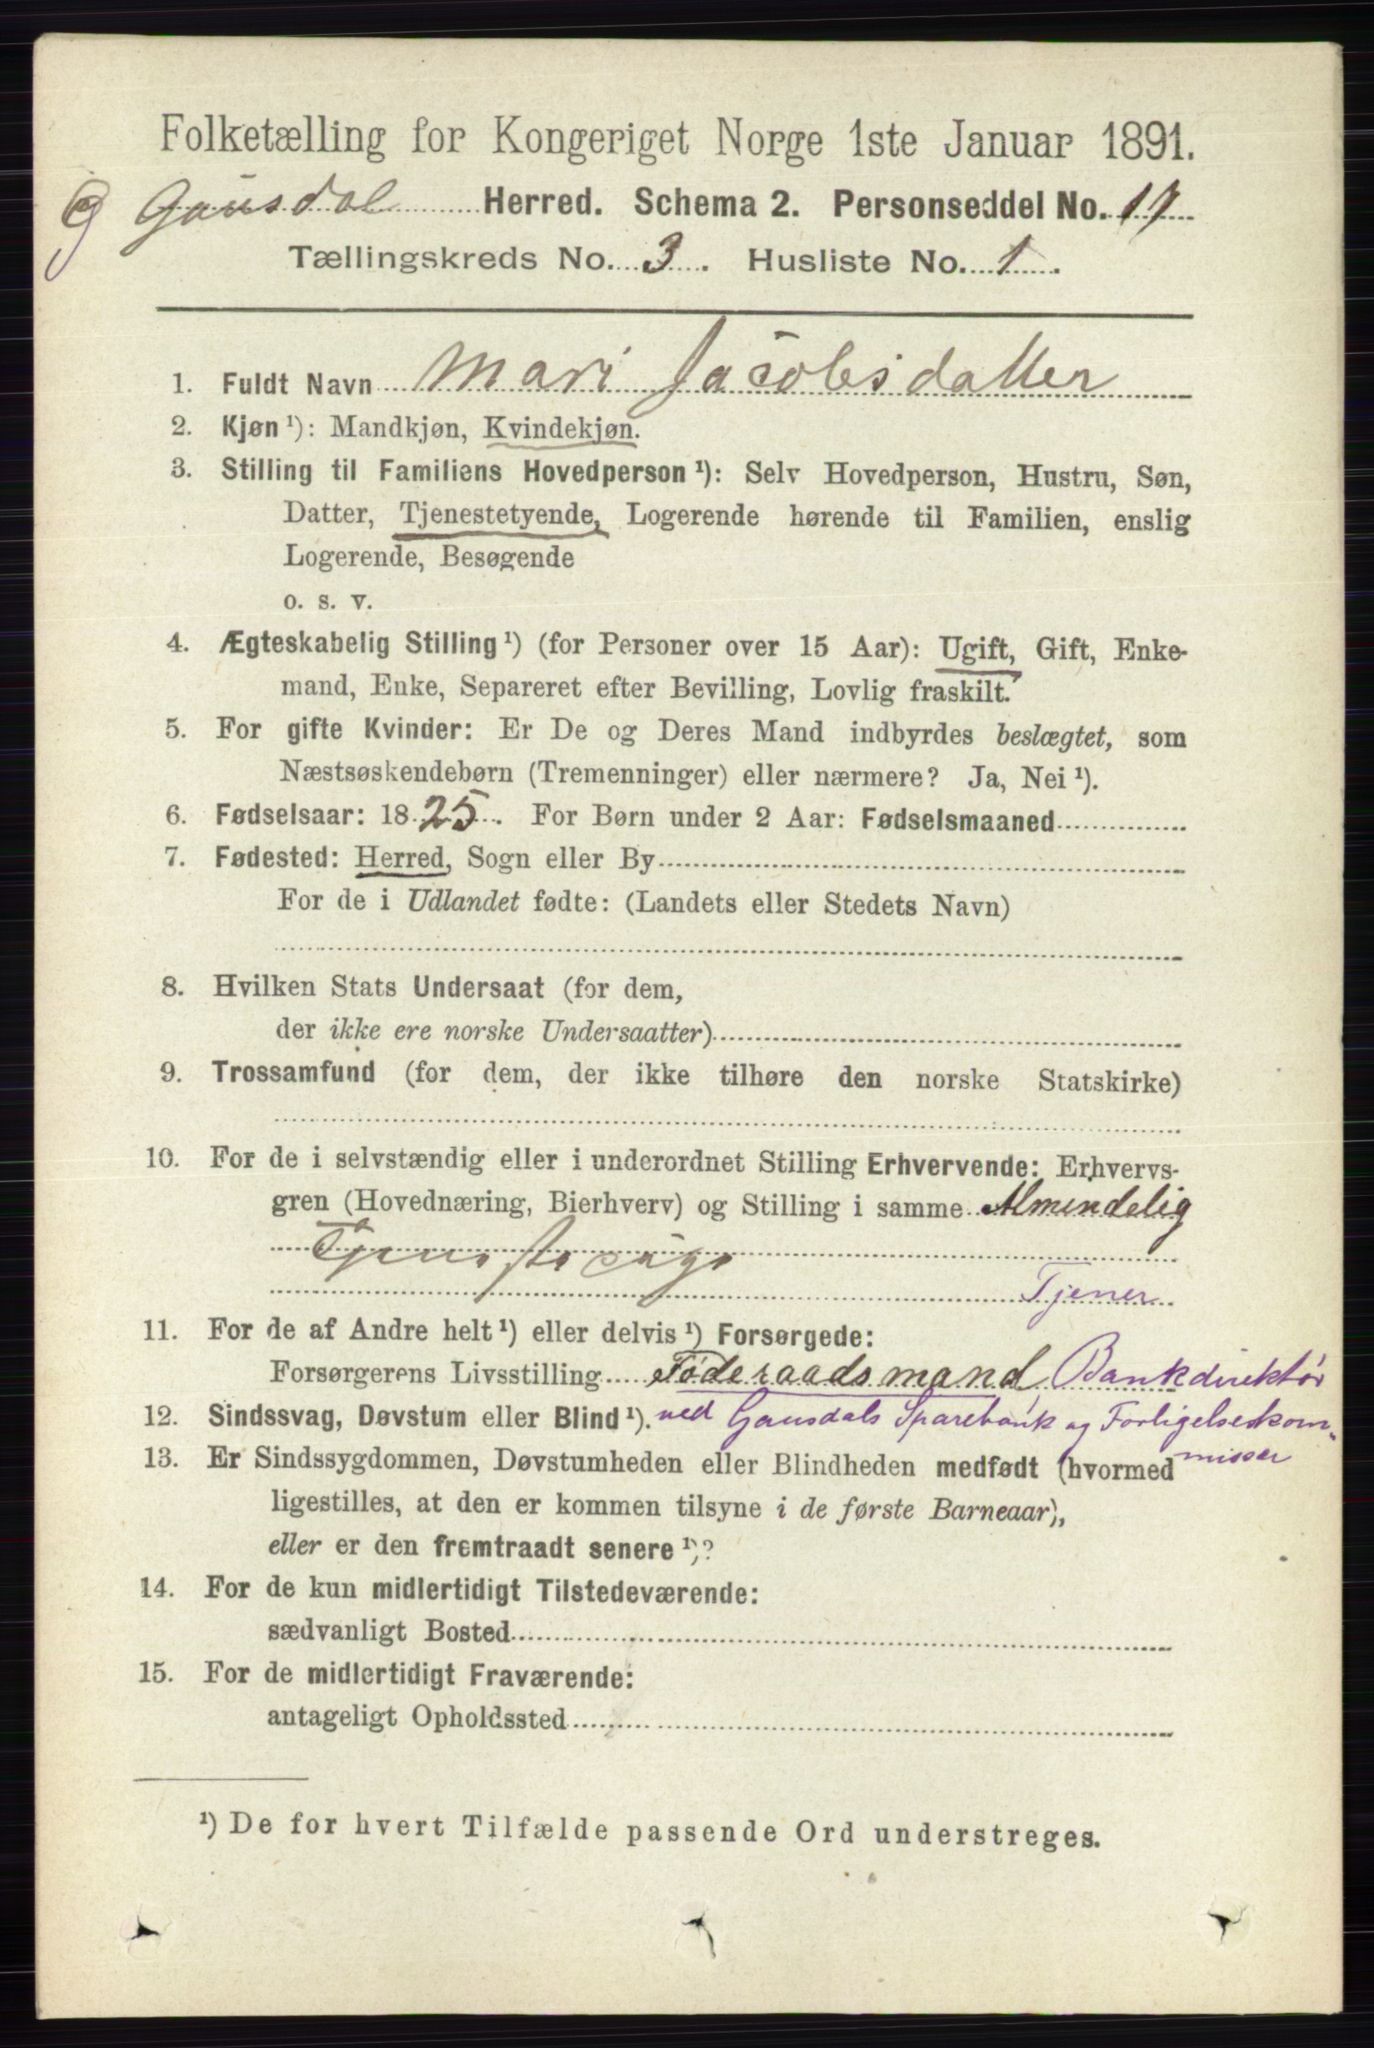 Folketælling for Kongeriget Norge 1ste Januar 1891.
Gausdal Herred. Schema 2. Personseddel No. 17
Tællingskreds No. 3. Husliste No. 1.
1. Fuldt Navn Mari Jacobsdatter
2. Kjøn ¹): Mandkjøn, Kvindekjøn.
3. Stilling til Familiens Hovedperson ¹): Selv Hovedperson, Hustru, Søn,
Datter, Tjenestetyende, Logerende hørende til Familien, enslig
Logerende, Besøgende
o. s. v.
4. Ægteskabelig Stilling ¹) (for Personer over 15 Aar): Ugift, Gift, Enke-
mand, Enke, Separeret efter Bevilling, Lovlig fraskilt.
5. For gifte Kvinder: Er De og Deres Mand indbyrdes beslægtet, som
Næstsøskendebørn (Tremenninger) eller nærmere? Ja, Nei ¹).
6. Fødselsaar: 1825. For Børn under 2 Aar: Fødselsmaaned
7. Fødested: Herred, Sogn eller By
For de i Udlandet fødte: (Landets eller Stedets Navn)
8. Hvilken Stats Undersaat (for dem,
der ikke ere norske Undersaatter)
9. Trossamfund (for dem, der ikke tilhøre den norske Statskirke)
10. For de i selvstændig eller i underordnet Stilling Erhvervende: Erhvervs-
gren (Hovednæring, Bierhverv) og Stilling i samme Almindelig
Tjenestepige
Tjener
11. For de af Andre helt ¹) eller delvis ¹) Forsørgede:
Forsørgerens Livsstilling Føderaadsmand, Bankdirektør
12. Sindssvag, Døvstum eller Blind ¹). ved Gausdals Sparebank og Forligelseskom-
13. Er Sindssygdommen, Døvstumheden eller Blindheden medfødt (hvormed missær
ligestilles, at den er kommen tilsyne i de første Barneaar),
eller er den fremtraadt senere ¹)?
14. For de kun midlertidigt Tilstedeværende:
sædvanligt Bosted
15. For de midlertidigt Fraværende:
antageligt Opholdssted
¹) De for hvert Tilfælde passende Ord understreges.